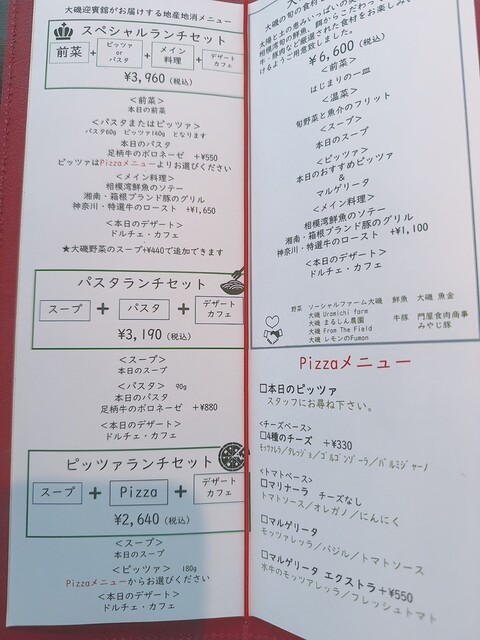 大磯迎賓館がお届けする地産地消メニュー
スペシャルランチセット
前菜 + ピッツァ or パスタ + メイン料理 + デザートカフェ
¥3,960 (税込)
<前菜>
本日の前菜
<パスタまたはピッツァ>
パスタ60g ピッツァ140g となります
本日のパスタ
足柄牛のボロネーゼ +¥550
ピッツァはPizzaメニューよりお選びください
<メイン料理>
相模湾鮮魚のソテー
湘南・箱根ブランド豚のグリル
神奈川・特選牛のロースト +¥1,650
<本日のデザート>
ドルチェ・カフェ
★大磯野菜のスープ+¥440で追加できます
パスタランチセット
スープ + パスタ + デザートカフェ
¥3,190 (税込)
<スープ>
本日のスープ
<パスタ> 90g
本日のパスタ
足柄牛のボロネーゼ +¥880
<本日のデザート>
ドルチェ・カフェ
ピッツァランチセット
スープ + Pizza + デザートカフェ
¥2,640 (税込)
<スープ>
本日のスープ
<ピッツァ> 180g
Pizzaメニューからお選びください
<本日のデザート>
ドルチェ・カフェ
大磯の旬の食材
大地と土の恵みいっぱいの
相模湾旬の鮮魚、餌からこだわっ
牛・豚肉など厳選された食材をお楽しみい
けるようご用意致しました。
¥6,600 (税込)
<前菜>
はじまりの一皿
<温菜>
旬野菜と魚介のフリット
<スープ>
本日のスープ
<ピッツァ>
本日のおすすめピッツァ
&
マルゲリータ
<メイン料理>
相模湾鮮魚のソテー
湘南・箱根ブランド豚のグリル
神奈川・特選牛のロースト +¥1,100
<本日のデザート>
ドルチェ・カフェ
野菜 ソーシャルファーム大磯 鮮魚 大磯 魚金
大磯 Uramichi farm 牛豚 門屋食肉商事
大磯 まるしん農園 みやじ豚
大磯 From The Field
大磯 レモンのFuman
Pizzaメニュー
□本日のピッツァ
スタッフにお尋ね下さい。
<チーズベース>
□4種のチーズ +¥330
モッツァレラ/タレッジョ/ゴルゴンゾーラ/パルミジャーノ
<トマトベース>
□マリナーラ チーズなし
トマトソース/オレガノ/にんにく
□マルゲリータ
モッツァレッラ/バジル/トマトソース
□マルゲリータ エクストラ+¥550
水牛のモッツアレッラ/フレッシュトマト